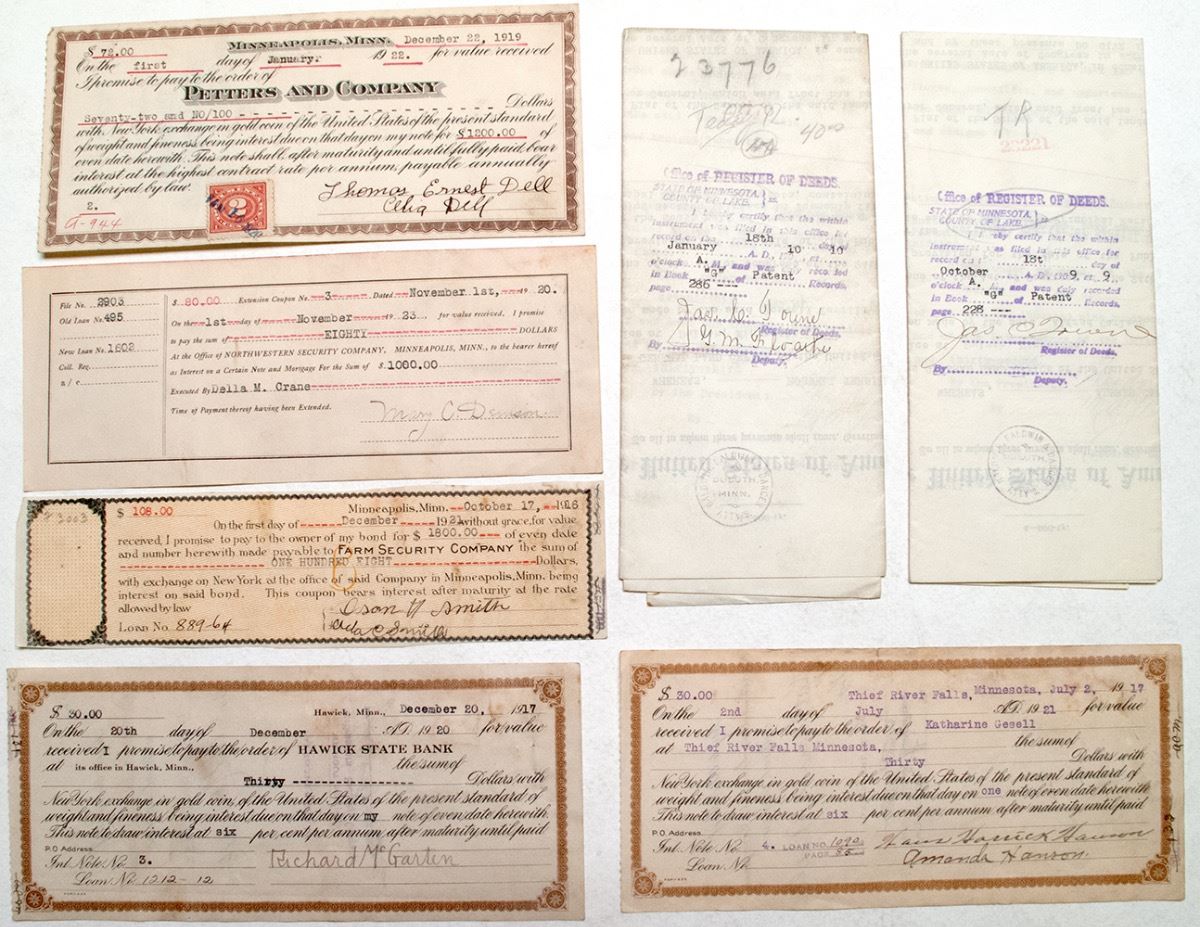 MINNEAPOLIS, MINN. December 22, 1919
$ 72.00
On the first day of January. 1922. for value received
I promise to pay to the order of
PETTERS AND COMPANY
Seventy-two and NO/100 - - - - - Dollars
with New York exchange in gold coin of the United States of the present standard
of weight and fineness, being interest due on that day on my note for $1200.00 of
even date herewith. This note shall, after maturity and until fully paid, bear
interest at the highest contract rate per annum, payable annually
authorized by law.
2.
2
Thomas Ernest Dell
Celia Dell
A-944
File No. 2903
Old Loan No. 495
New Loan No. 1602
Coll. Reg.
a / c
$ 80.00 Extension Coupon No. --3-- Dated --November 1st, --1920.
On the --1st--day of --November --1923-- for value received, I promise
to pay the sum of --EIGHTY-- DOLLARS
At the Office of NORTHWESTERN SECURITY COMPANY, MINNEAPOLIS, MINN., to the bearer hereof
as Interest on a Certain Note and Mortgage For the Sum of $ 1000.00
Executed By Della M. Crane
Time of Payment thereof having been Extended.
Mary C. Denison
$ 108.00 Minneapolis, Minn. --October 17, --1916
On the first day of -----December --1921 without grace, for value
received, I promise to pay to the owner of my bond for $ 1800.00 --- of even date
and number herewith made payable to FARM SECURITY COMPANY the sum of
ONE HUNDRED EIGHT Dollars,
with exchange on New York at the office of said Company in Minneapolis, Minn. being
interest on said bond. This coupon bears interest after maturity at the rate
allowed by law
Oson W Smith
Loan No. 889-64
Ada C Smith
$ 30.00 Hawick, Minn., December 20, 1917
On the 20th day of December A.D. 1920 for value
received I promise to pay to the order of HAWICK STATE BANK
at its office in Hawick, Minn., the sum of
Thirty - - - - - - - - - - Dollars with
New York exchange in gold coin, of the United States of the present standard of
weight and fineness being interest due on that day on my note of even date herewith.
This note to draw interest at six per cent per annum after maturity until paid
P.O. Address
Int. Note No. 3. Richard McGarten
Loan No. 1212-12
23776
40 00
Office of REGISTER OF DEEDS.
STATE OF MINNESOTA, } ss.
COUNTY OF LAKE.
I hereby certify that the within
instrument was filed in this office for
record on the 18th day of
January A. D., 1910 10
o'clock A. M., and was duly recorded
in Book "G" of Patent Records,
page 286 ---
Register of Deeds.
By
Deputy.
DULUTH,
MINN.
23221
Office of REGISTER OF DEEDS.
STATE OF MINNESOTA, } ss.
COUNTY OF LAKE.
I hereby certify that the within
instrument was filed in this office for
record on 18t day of
October A. D., 1909, 9
o'clock A. M., and was duly recorded
in Book "G" of Patent Records,
page 228 ---
Register of Deeds.
By
Deputy.
$ 30.00 Thief River Falls, Minnesota, July 2, 1917
On the 2nd day of July A.D. 1921 for value
received I promise to pay to the order of Katharine Gesell
at Thief River Falls Minnesota, the sum of
Thirty Dollars with
New York exchange in gold coin of the United States of the present standard of
weight and fineness being interest due on that day on one note of even date herewith.
This note to draw interest at six per cent per annum after maturity until paid
P.O. Address
Int. Note No. 4. LOAN NO. 1090
PAGE 85
Loan No.
Hans Horrick Hanson
Amanda Hanson.